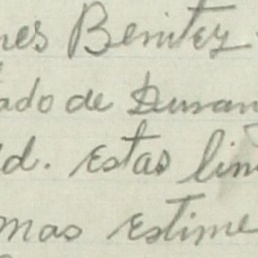 nes Benitez
tado de Duran
d. estas lin
mas estime